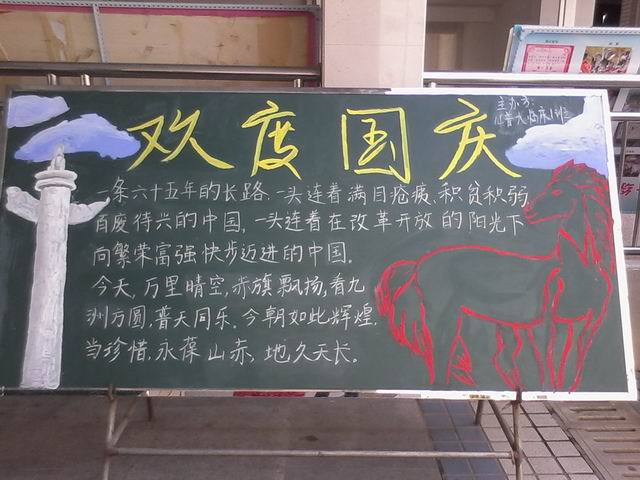 欢度国庆
主办方:
一条六十五年的长路,一头连着满目疮痍,积贫积弱,
百废待兴的中国,一头连着在改革开放的阳光下
向繁荣富强快步迈进的中国.
今天,万里晴空,赤旗飘扬,看九
洲方圆,普天同乐.今朝如此辉煌,
当珍惜,永葆山赤,地久天长.